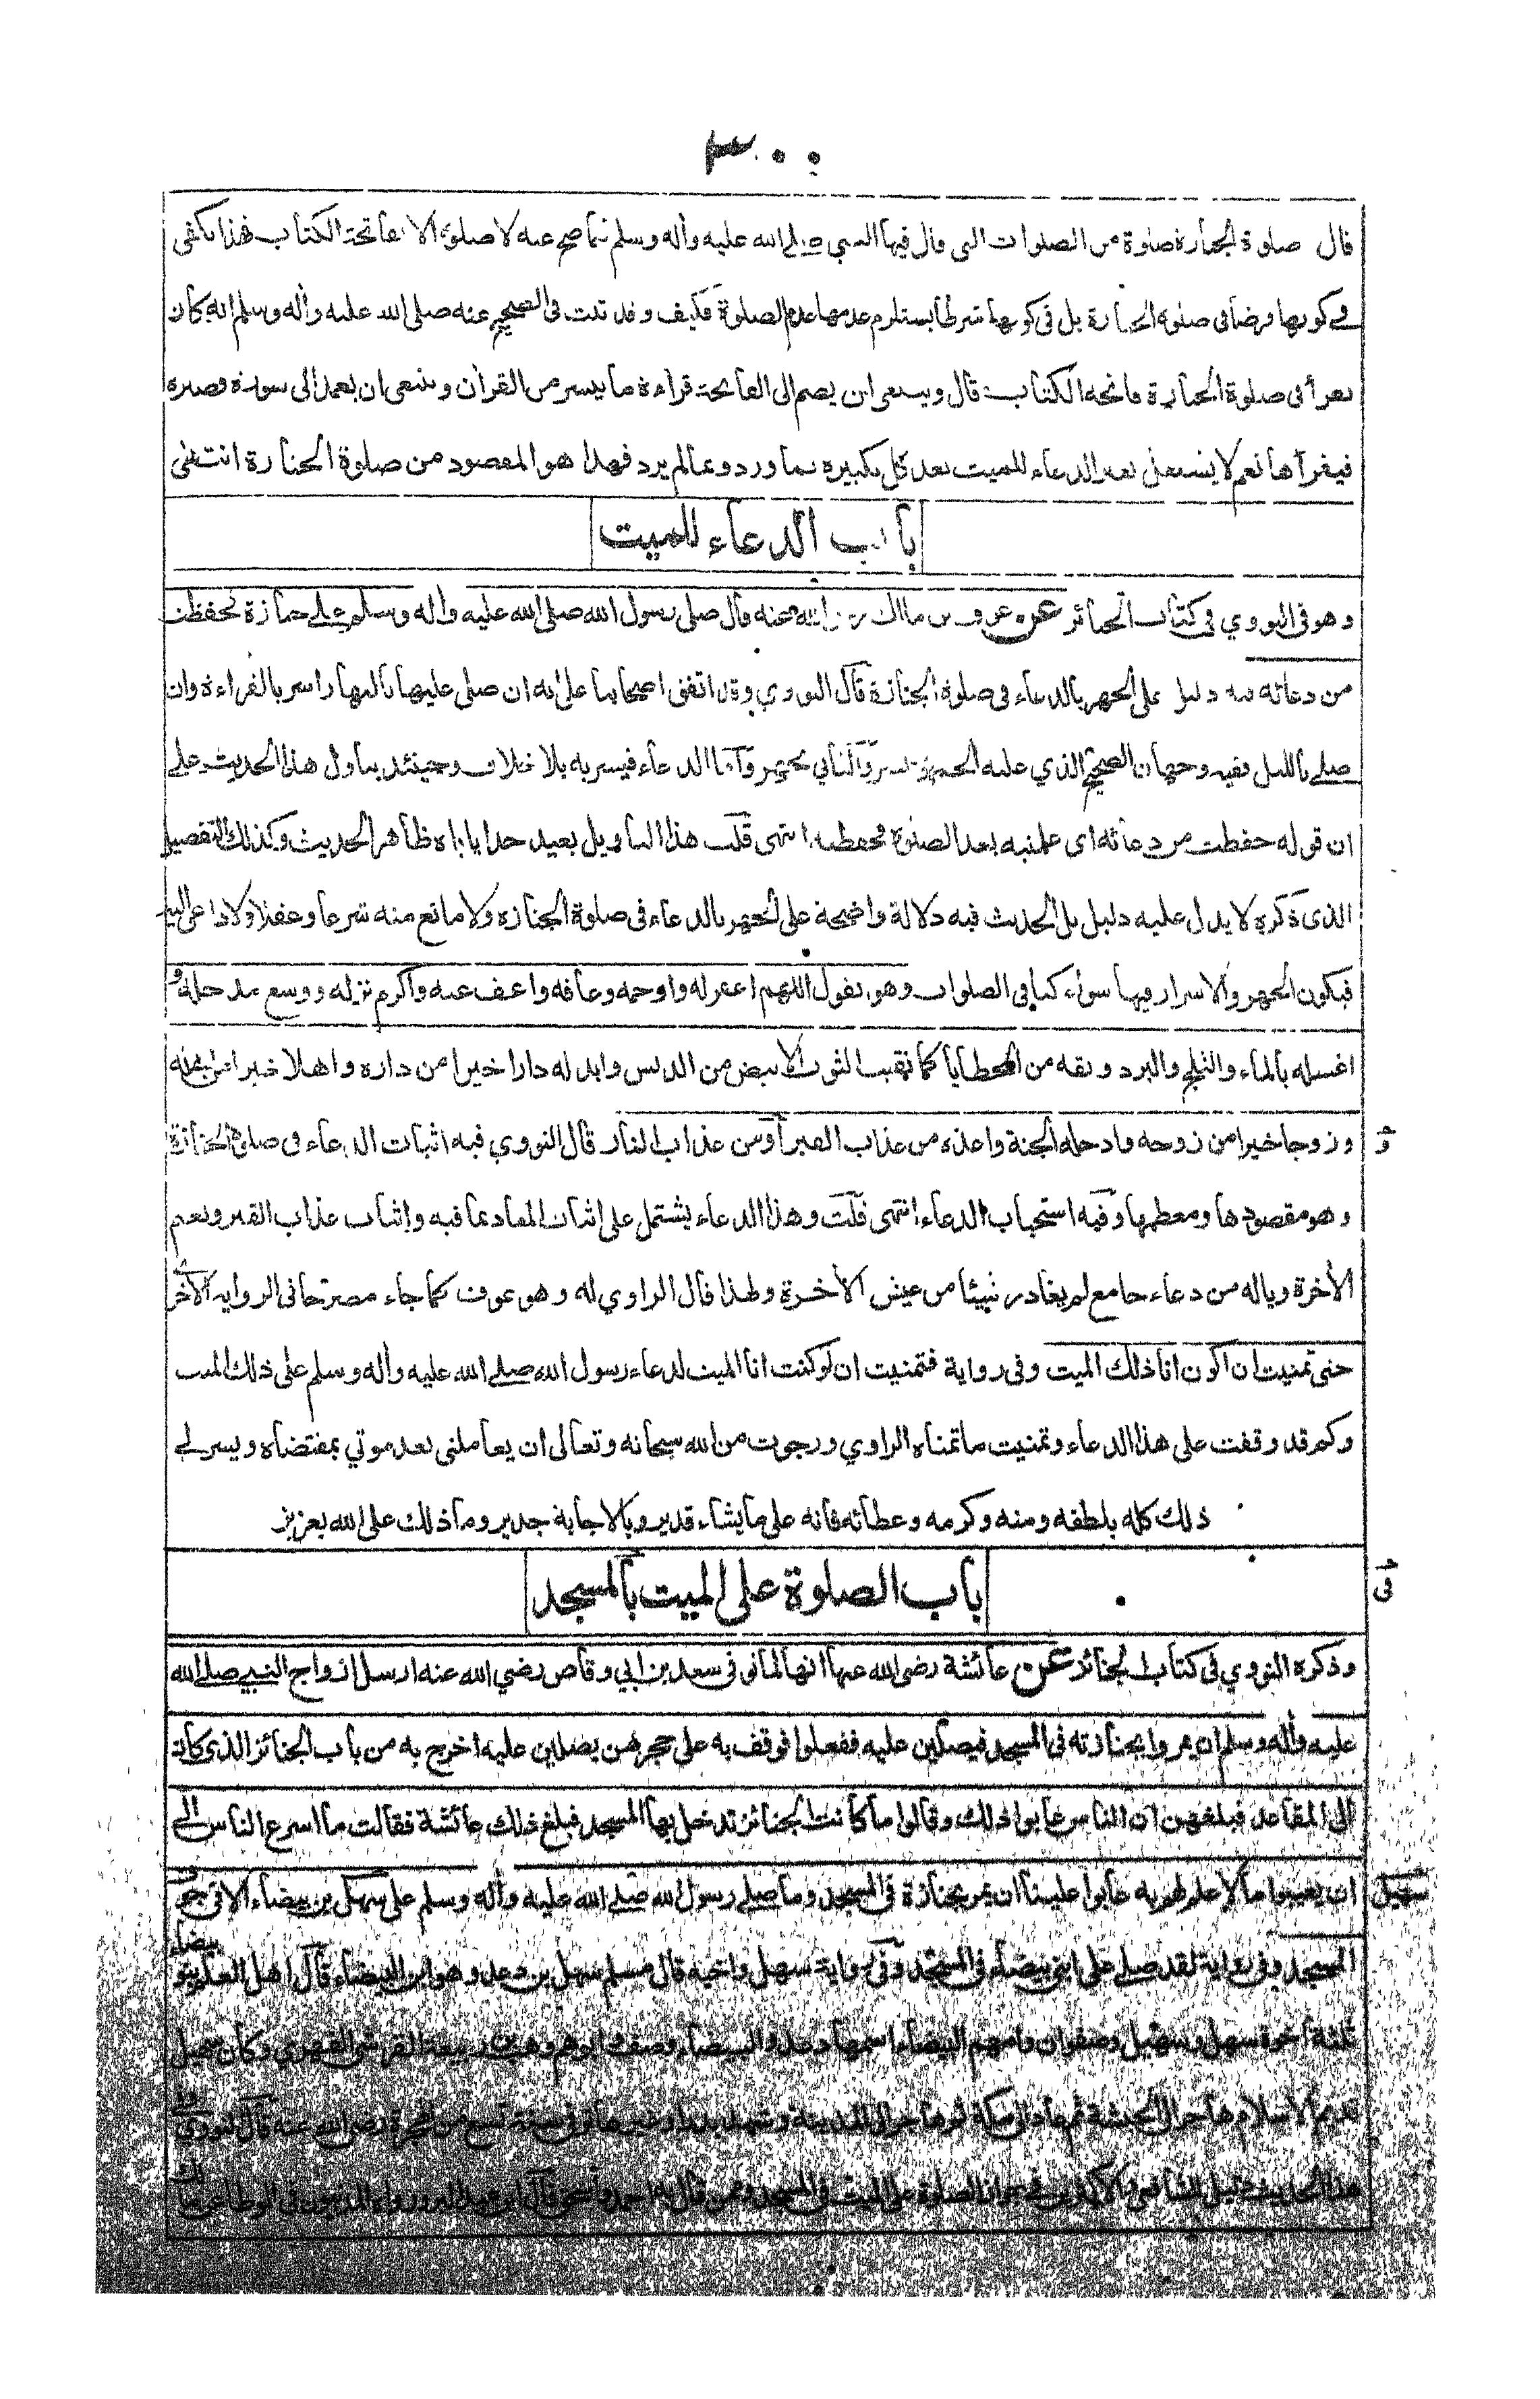 ٣٠٠
قال صلوة الجنازة صلوة من الصلوات التي قال فيها النبي صلى الله عليه وأله وسلم فيما صح عنه لا صلوة الا بفاتحة الكتاب فهذا يكفي
في كونها فرضا في صلوة الجنازة بل في كونها شرطا يستلزم عدمها عدم الصلوة فكيف وقد ثبت في الصحيح عنه صلى الله عليه وأله وسلم انه كان
يقرأ في صلوة الجنازة فاتحة الكتاب قال وينبغي ان يضم الى الفاتحة قراءة ما تيسر من القرأن وينبغي ان يعمد الى سورة قصيرة
فيقرأها نعم لا يشتغل بعد الدعاء للميت بعد كل تكبيره بما ورد وبما لم يرد فهذا هو المقصود من صلوة الجنازة انتهى
باب الدعاء للميت
وهو في النووي في كتاب الجنائز عن عوف بن مالك رضي الله عنه قال صلى رسول الله صلى الله عليه وأله وسلم على جنازة فحفظت
من دعائه فيه دليل على الجهر بالدعاء في صلوة الجنازة قال النووي وقد اتفق اصحابنا على انه ان صلى عليها بالنهار اسر بالقراءة وان
صلى بالليل ففيه وجهان الصحيح الذي عليه الجمهور يسر والثاني يجهر وأما الدعاء فيسر به بلا خلاف وحينئذ يتأول هذا الحديث على
ان قوله حفظت من دعائه اى علمنيه بعد الصلوة فحفظته انتهى قلت هذا التأويل بعيد جدا يأباه ظاهر الحديث وكذلك التفصيل
الذى ذكره لا يدل عليه دليل بل الحديث فيه دلالة واضحة على الجهر بالدعاء في صلوة الجنازة ولا مانع منه شرعا وعقلا ولا داعى اليه
فيكون الجهر والاسرار فيها سواء كما في الصلوات وهو يقول اللهم اغفر له وارحمه وعافه واعف عنه واكرم نزله ووسع مدخله و
اغسله بالماء والثلج والبرد ونقه من الخطايا كما نقيت الثوب الابيض من الدنس وابدله دارا خيرا من داره واهلا خيرا من اهله
وزوجا خيرا من زوجه وادخله الجنة واعذه من عذاب القبر أو من عذاب النار قال النووي فيه اثبات الدعاء في صلوة الجنازة
وهو مقصودها ومعظمها وفيه استحباب الدعاء انتهى قلت وهذا الدعاء يشتمل على اثبات المعاد بما فيه واثبات عذاب القبر ونعيم
الأخرة وياله من دعاء جامع لم يغادر شيئا من عيش الأخرة ولهذا قال الراوي له وهو عوف كما جاء مصرحا في الرواية الأخرى
حتى تمنيت ان اكون انا ذلك الميت وفي رواية فتمنيت ان لو كنت انا الميت لدعاء رسول الله صلى الله عليه وأله وسلم على ذلك الميت
وكم قد وقفت على هذا الدعاء وتمنيت ما تمناه الراوي ورجوت من الله سبحانه وتعالى ان يعاملني بعد موتي بمقتضاه وييسر لي
ذلك كله بلطفه ومنه وكرمه وعطائه فانه على ما يشاء قدير وبالاجابة جدير وما ذلك على الله بعزيز
باب الصلوة على الميت بالمسجد
وذكره النووي في كتاب الجنائز عن عائشة رضى الله عنها انها لما توفى سعد بن ابي وقاص رضي الله عنه ارسل ازواج النبي صلى الله
عليه وأله وسلم ان يمروا بجنازته في المسجد فيصلين عليه ففعلوا فوقف به على حجرهن يصلين عليه اخرج به من باب الجنائز الذي كان
الى المقاعد فبلغهن ان الناس عابوا ذلك وقالوا ما كانت الجنائز تدخل بها المسجد فبلغ ذلك عائشة فقالت ما اسرع الناس الى
ان يعيبوا ما لا علم لهم به عابوا علينا ان يمر بجنازة في المسجد وما صلى رسول الله صلى الله عليه وأله وسلم على سهيل بن بيضاء الا في جوف
المسجد وفي رواية لقد صلى على ابني بيضاء في المسجد وفي رواية سهيل واخيه قال مسلم سهيل بن دعد وهو ابن البيضاء قال اهل العلم بنو بيضاء
ثلثة اخوة سهل وسهيل وصفوان وامهم البيضاء اسمها دعد والبيضاء وصف وابوهم وهب بن ربيعة القرشي الفهري وكان سهيل
قديم الاسلام هاجر الى الحبشة ثم عاد الى مكة ثم هاجر الى المدينة وشهد بدرا وغيرها توفي سنة تسع من الهجرة رضي الله عنه قال النووي وفي
هذا الحديث دليل للشافعي والاكثرين في جواز الصلوة على الميت في المسجد وممن قال به احمد واسحق قال ابن عبد البر ورواه المدنيون في الموطا عن مالك